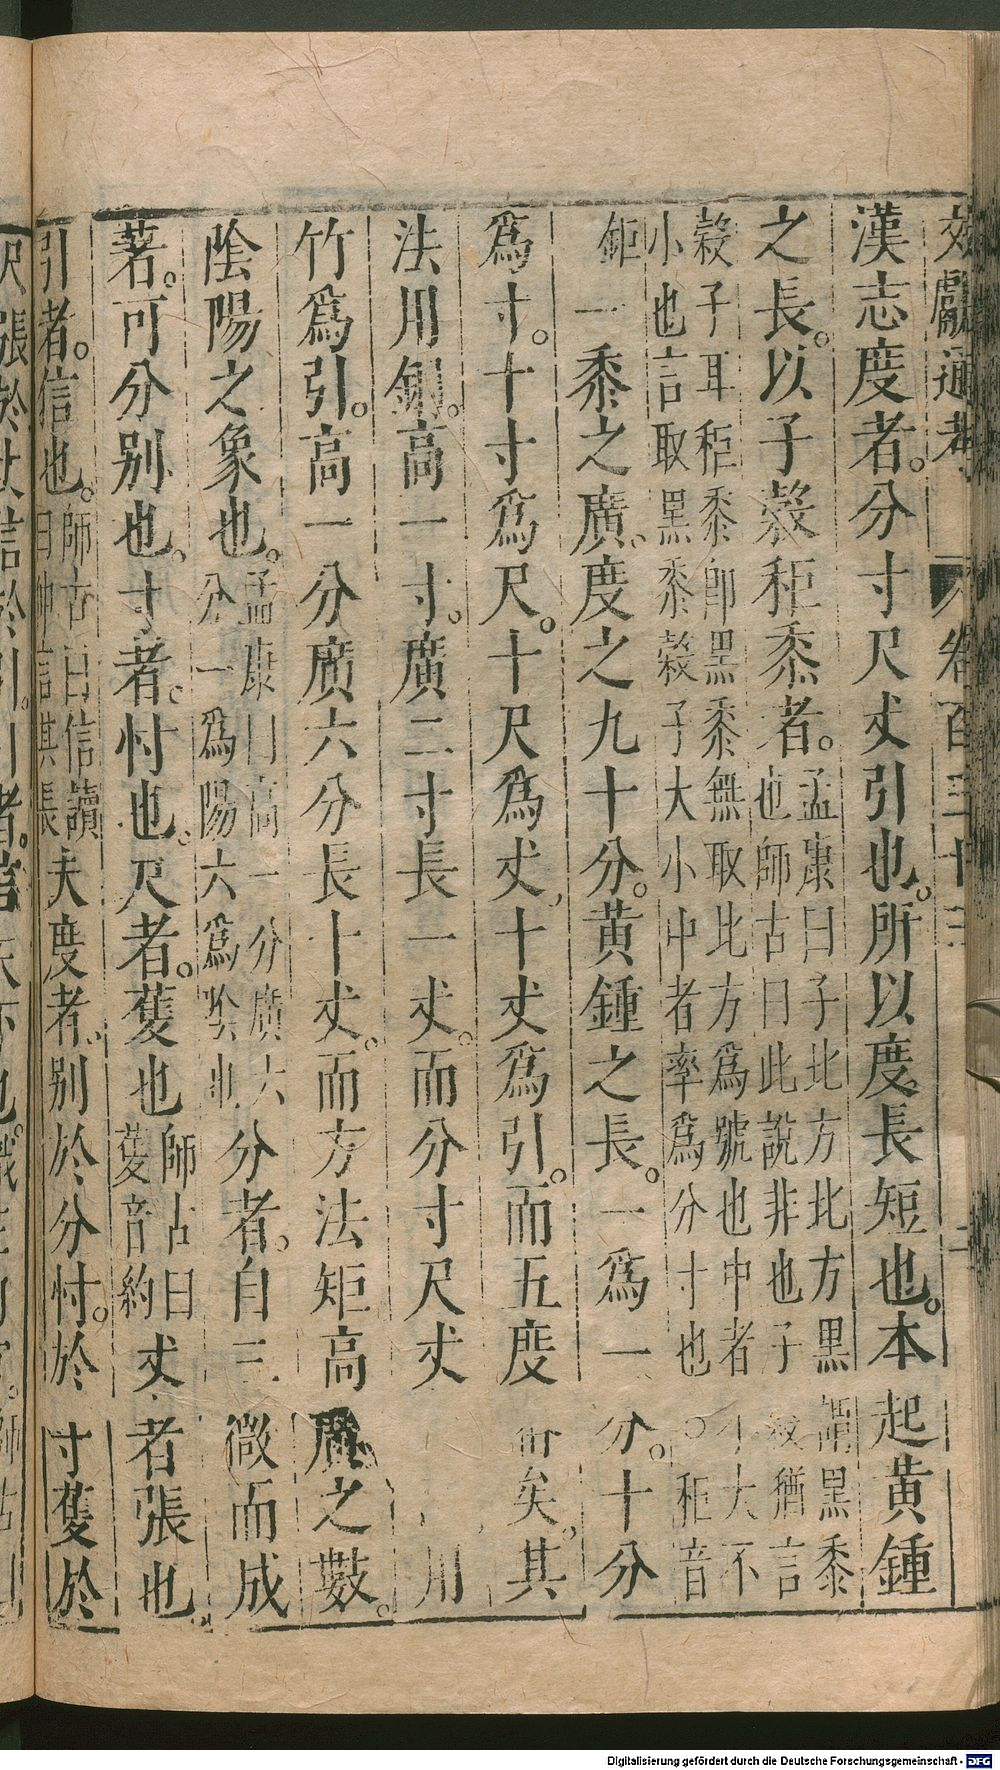 文獻通考 卷百三十三
漢志度者。分寸尺丈引也。所以度長短也。本起黃鍾
之長。以子穀秬黍者。孟康曰子北方北方黑謂黑黍
也師古曰此說非也子穀猶言
穀子耳秬黍卽黑黍無取北方爲號也中者不大不
小也言取黑黍穀子大小中者率爲分寸也。秬音
鉅一黍之廣。度之九十分。黃鍾之長。一爲一分。十分
爲寸。十寸爲尺。十尺爲丈。十丈爲引。而五度矣。其
法用銅。高一寸。廣二寸長一丈。而分寸尺丈用
竹爲引。高一分廣六分長十丈。而方法矩高廣之數。
陰陽之象也。孟康曰高一分廣六
分一爲陽六爲陰也分者。自三微而成
著。可分別也。寸者。忖也。尺者。蒦也師古曰
蒦音約丈者張也
引者。信也。師古曰信讀
曰伸言其長夫度者。別於分忖。於寸蒦於
Digitalisierung gefördert durch die Deutsche Forschungsgemeinschaft - DFG